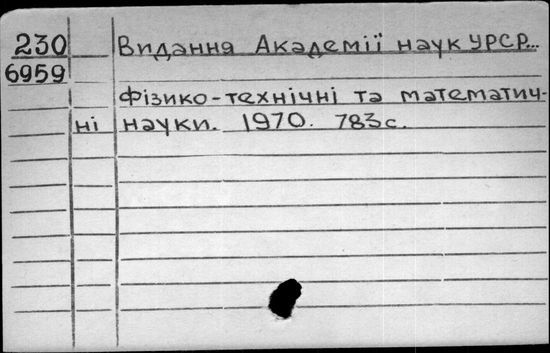 230 Видання Академії наук УРСР...
6959
Фізико-технічні та математич-
ні науки. 1970. 783с.